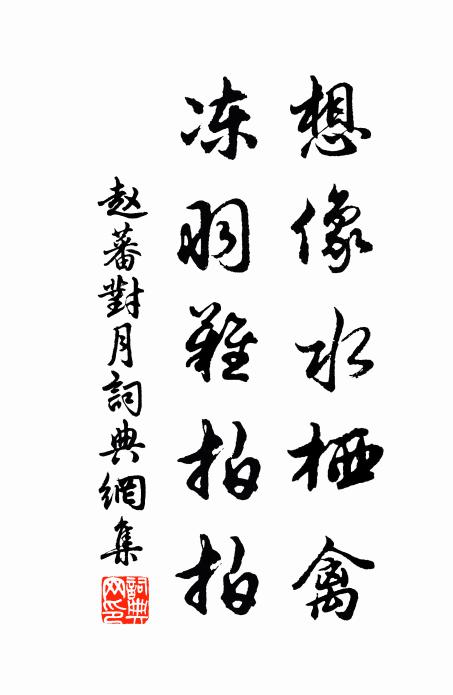 想像水栖禽
冻羽难拍拍
赵蕃對月詞典網集
詞典網印